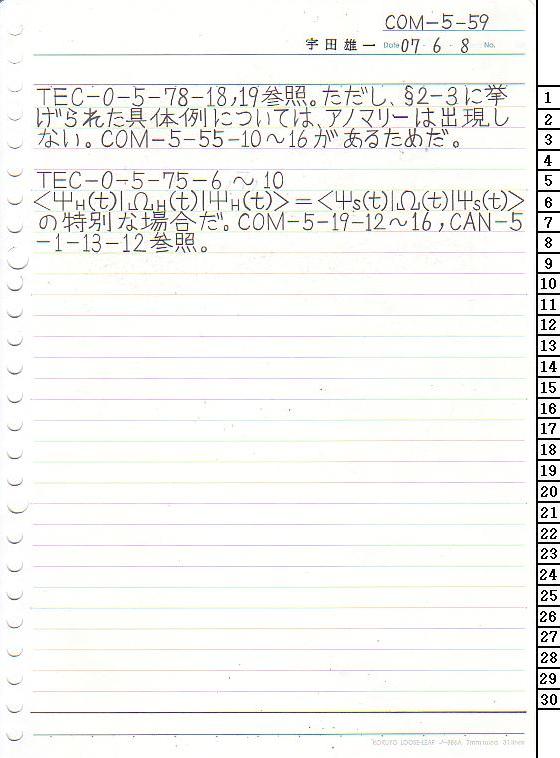 COM-5-59
宇田雄一 Date 07・6・8 No.
TEC-0-5-78-18,19参照。ただし、§2-3に挙
げられた具体例については、アノマリーは出現し
ない。COM-5-55-10～16があるためだ。
TEC-0-5-75-6～10
<ΨH(t)|ΩH(t)|ΨH(t)>=<Ψs(t)|Ω(t)|Ψs(t)>
の特別な場合だ。COM-5-19-12～16,CAN-5
-1-13-12参照。
1
2
3
4
5
6
7
8
9
10
11
12
13
14
15
16
17
18
19
20
21
22
23
24
25
26
27
28
29
30
KOKUYO LOOSE-LEAF 7mm ruled 31 lines